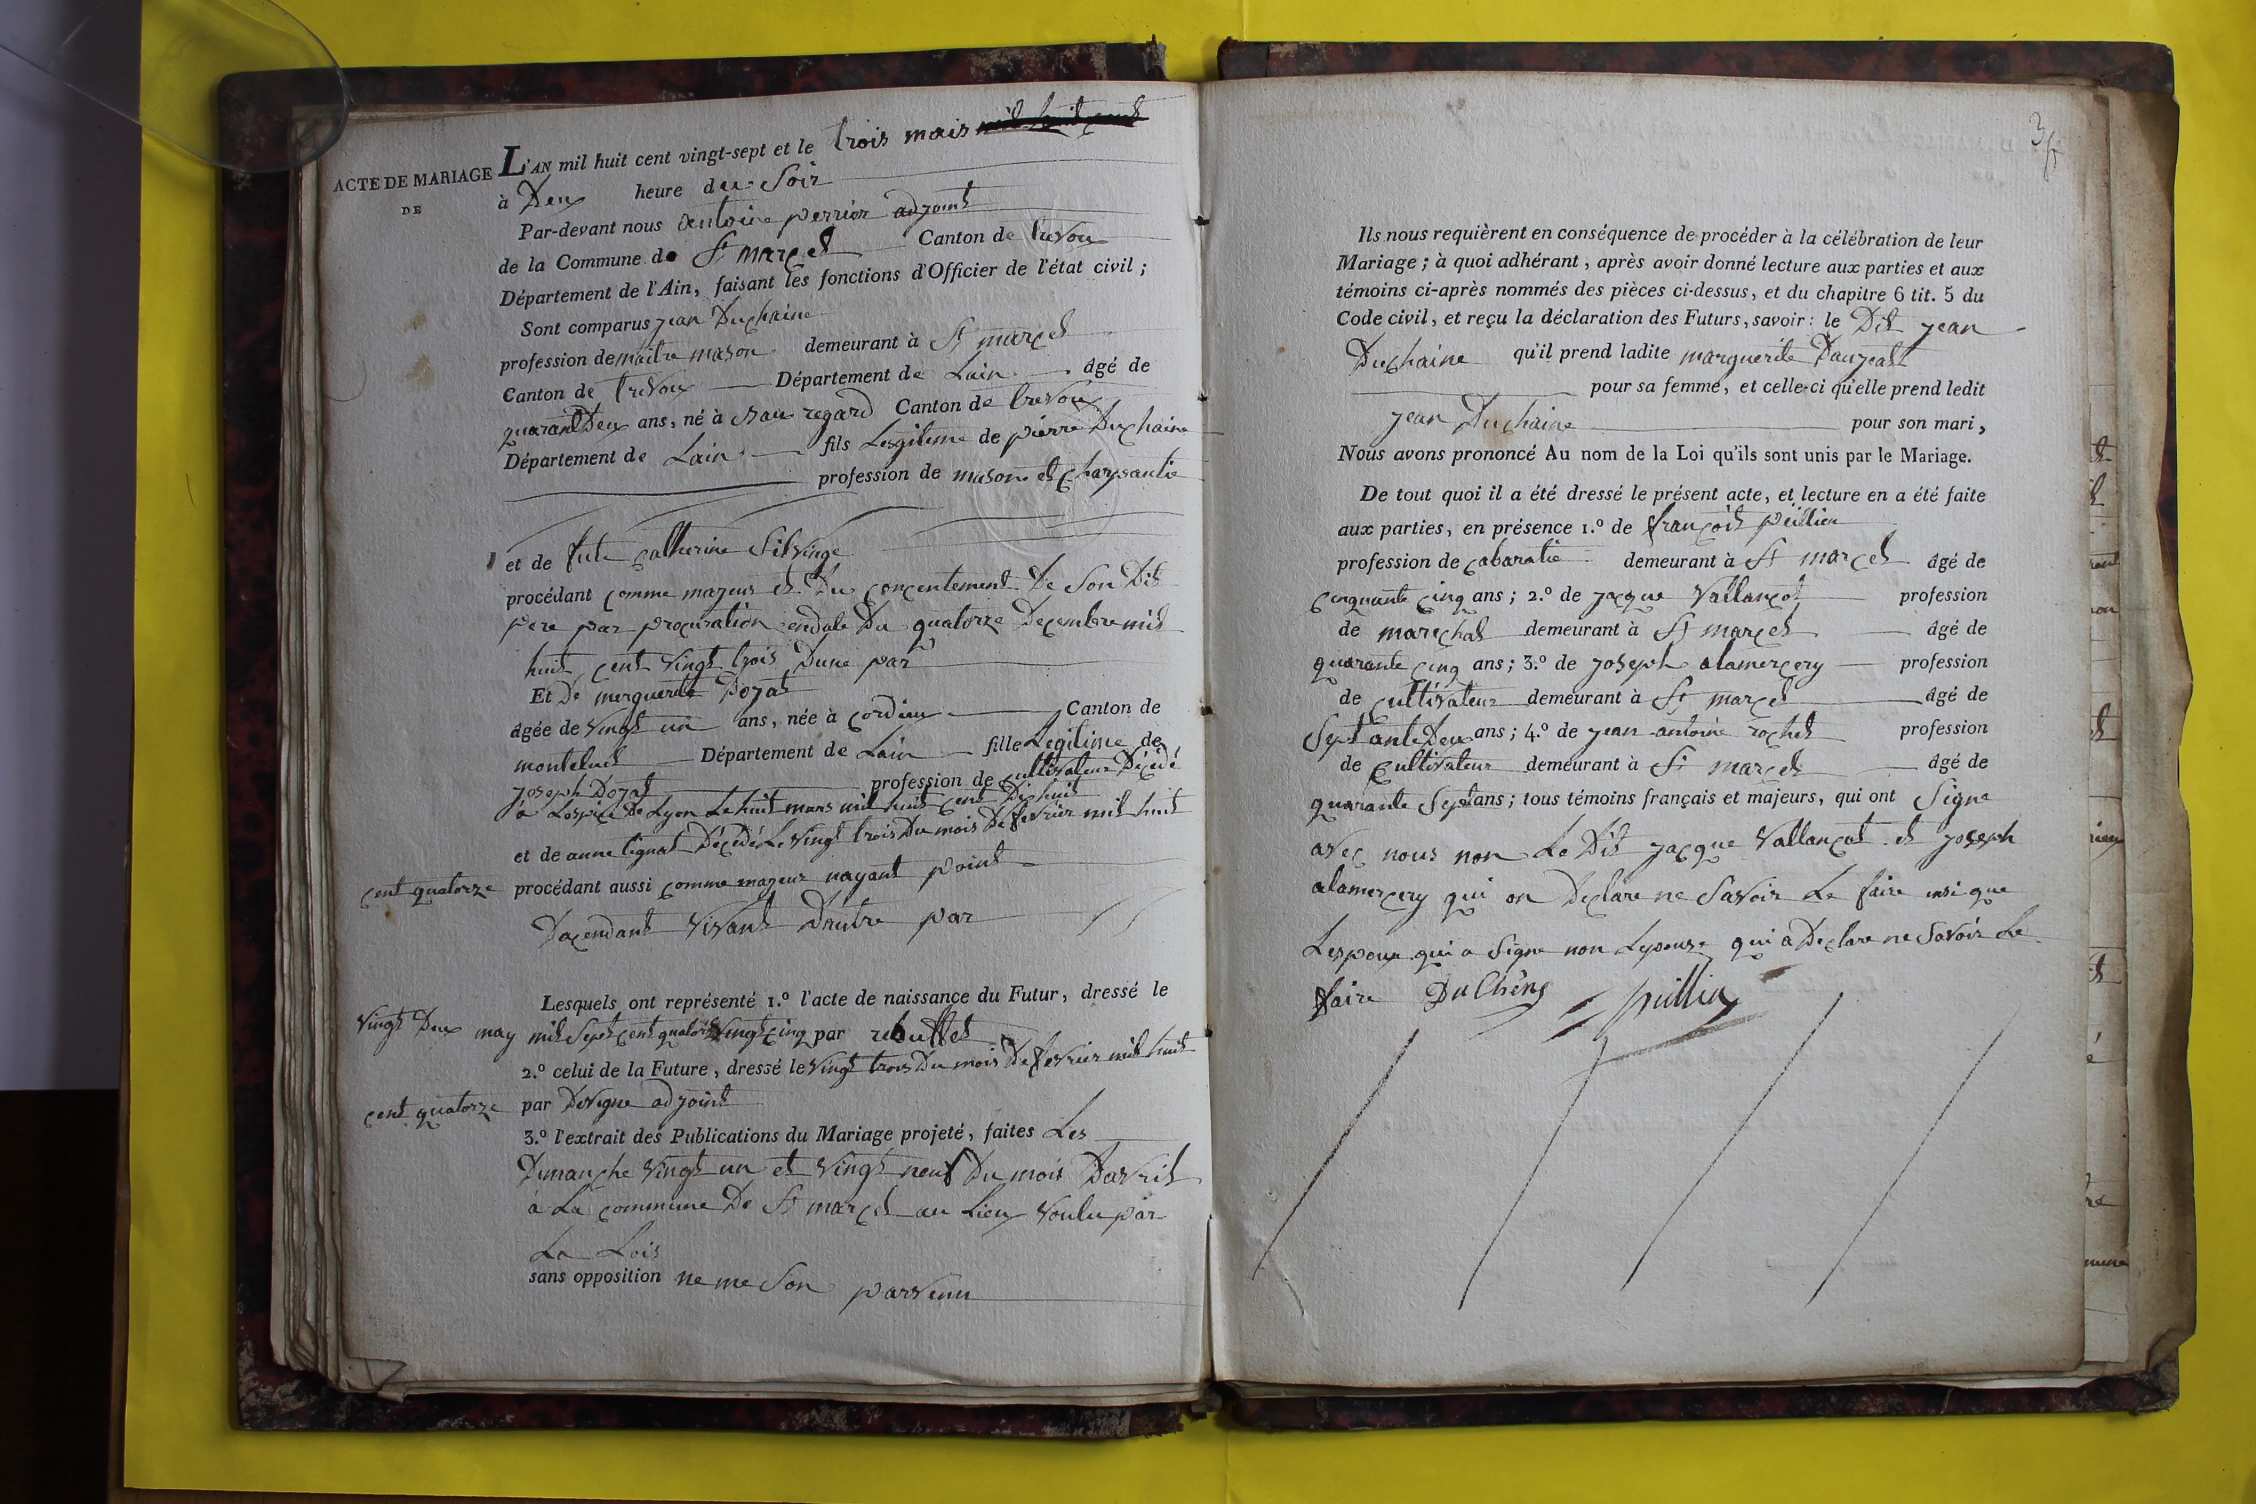 ACTE DE MARIAGE
DE
L'AN mil huit cent vingt-sept et le trois mais
à Deux heure du Soir
Par-devant nous antoine perrier adjoint
de la Commune de St marcel Canton de trevou
Département de l'Ain, faisant les fonctions d'Officier de l'état civil ;
Sont comparus jean Duchaine
profession de maitre mason demeurant à St marcel
Canton de trevoux Département de Lain âgé de
quarantDeux ans, né à regard Canton de trevoux
Département de Lain fils Lesgitime de pierre Duchaine
profession de mason et charpantie
et de fute catherine Silvinge
procédant comme majeur et Du concentement De Son Dit
pere par procuration endate Du quatorze Decembre mil
huit cent vingt trois Dune par
Et De merguerite Dojat
âgée de vingt un ans, née à cordieu Canton de
monteluel Département de Lain fille Legitime de
joseph Dojat profession de cultivateur Décédé
à Lospice De Lyon Le huit mars mil huit cent Dixhuit
et de anne tignat Décédé Le vingt trois Du mois De fevrier mil huit
cent quatorze procédant aussi comme majeur nayant point
Dacendant vivant Dautre par
Lesquels ont représenté 1.º l'acte de naissance du Futur, dressé le
vingt Deux may mil Sept cent quatre vingt cinq par rebuffet
2.º celui de la Future, dressé le vingt trois Du mois De fevrier mil huit
cent quatorze par Devigne adjoint
3.º l'extrait des Publications du Mariage projeté, faites Les
Dimanche vingt un et vingt neuf Du mois Davril
à La commune De St marcel au Lieu voulu par
La Lois
sans opposition ne me Son parvenu
3
Ils nous requièrent en conséquence de procéder à la célébration de leur
Mariage ; à quoi adhérant, après avoir donné lecture aux parties et aux
témoins ci-après nommés des pièces ci-dessus, et du chapitre 6 tit. 5 du
Code civil, et reçu la déclaration des Futurs, savoir : le Dit jean
Duchaine qu'il prend ladite marguerite Daujeat
pour sa femme, et celle-ci qu'elle prend ledit
jean Duchaine pour son mari,
Nous avons prononcé Au nom de la Loi qu'ils sont unis par le Mariage.
De tout quoi il a été dressé le présent acte, et lecture en a été faite
aux parties, en présence 1.º de françoit peillien
profession de cabaratie demeurant à St marcel âgé de
cinquante cinq ans ; 2.º de jacque Vallançot profession
de marechal demeurant à St marcel âgé de
quarante cinq ans ; 3.º de joseph alamercery profession
de cultivateur demeurant à St marcel âgé de
SeptanteDeux ans ; 4.º de jean antoine rochet profession
de cultivateur demeurant à St marcel âgé de
quarante Sept ans ; tous témoins français et majeurs, qui ont Signe
avec nous non Le Dit jacque Vallançot et joseph
alamercery qui on Declare ne Savoir Le faire insi que
Lespoux qui a Signe non Lepouze qui a Declare ne Savoir Le
faire DuChêne puillin